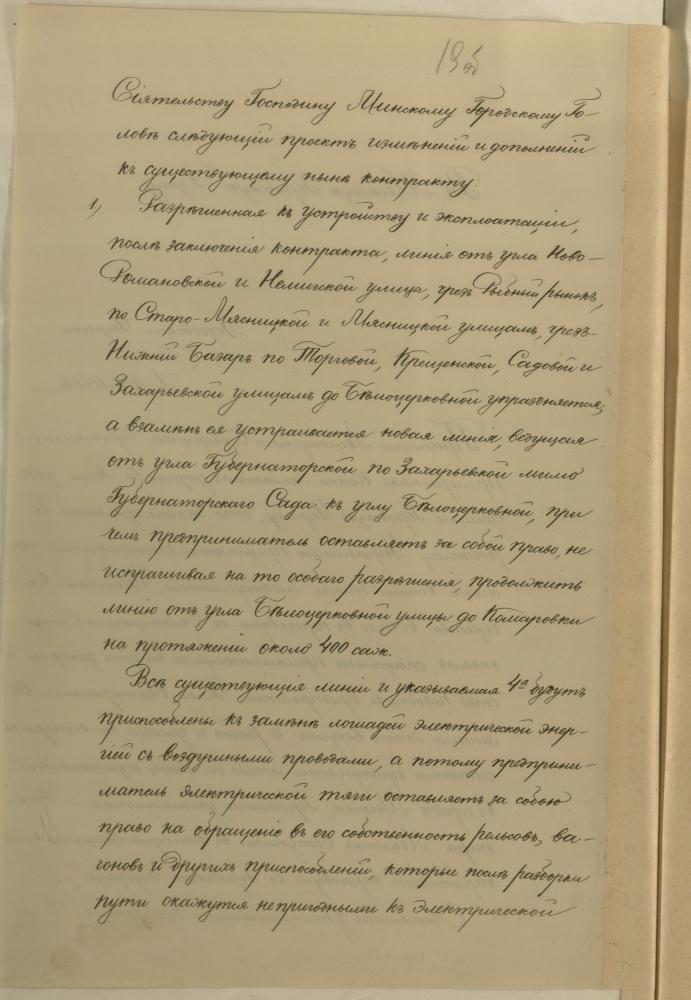 19об
Сіятельству Господину Минскому Городскому Го-
ловѣ слѣдующій проектъ измѣненій и дополненій
къ существующему нынѣ контракту.
1) Разрѣшенная къ устройству и эксплоатаціи,
послѣ заключенія контракта, линія отъ угла Ново-
Романовской и Немигской улицъ, чрезъ Рыбный рынокъ,
по Старо-Мясницкой и Мясницкой улицамъ, чрезъ-
Нижній Базаръ по Торговой, Крещенской, Садовой и
Захарьевской улицамъ до Бѣлоцерковной упраздняется,
а взамѣнъ ея устраивается новая линія, ведущая
отъ угла Губернаторской по Захарьевской мимо
Губернаторскаго Сада къ углу Бѣлоцерковной, при
чемъ предприниматель оставляетъ за собой право, не
испрашивая на то особаго разрѣшенія, продолжить
линію отъ угла Бѣлоцерковной улицы до Комаровки
на протяженіи около 400 саж.
Всѣ существующія линіи и указываемая 4ª будутъ
приспособлены къ замѣнѣ лошадей электрической энер-
гіей съ воздушными проводами, а потому предприни-
матель электрической тяги оставляетъ за собою
право на обращеніе въ его собственность рельсовъ, ва-
гоновъ и другихъ приспособленій, которые послѣ разборки
пути окажутся непригодными къ электрической